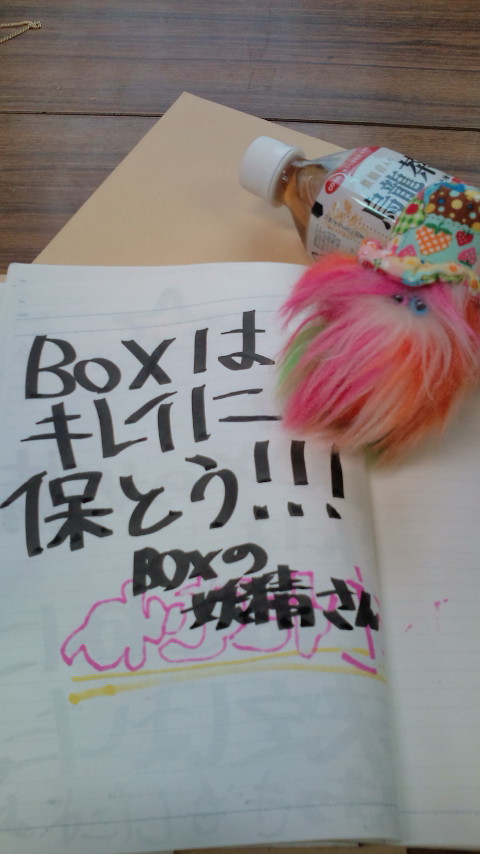 Boxは
キレイに
保とう!!!
BOXの
妖精さん
烏龍茶